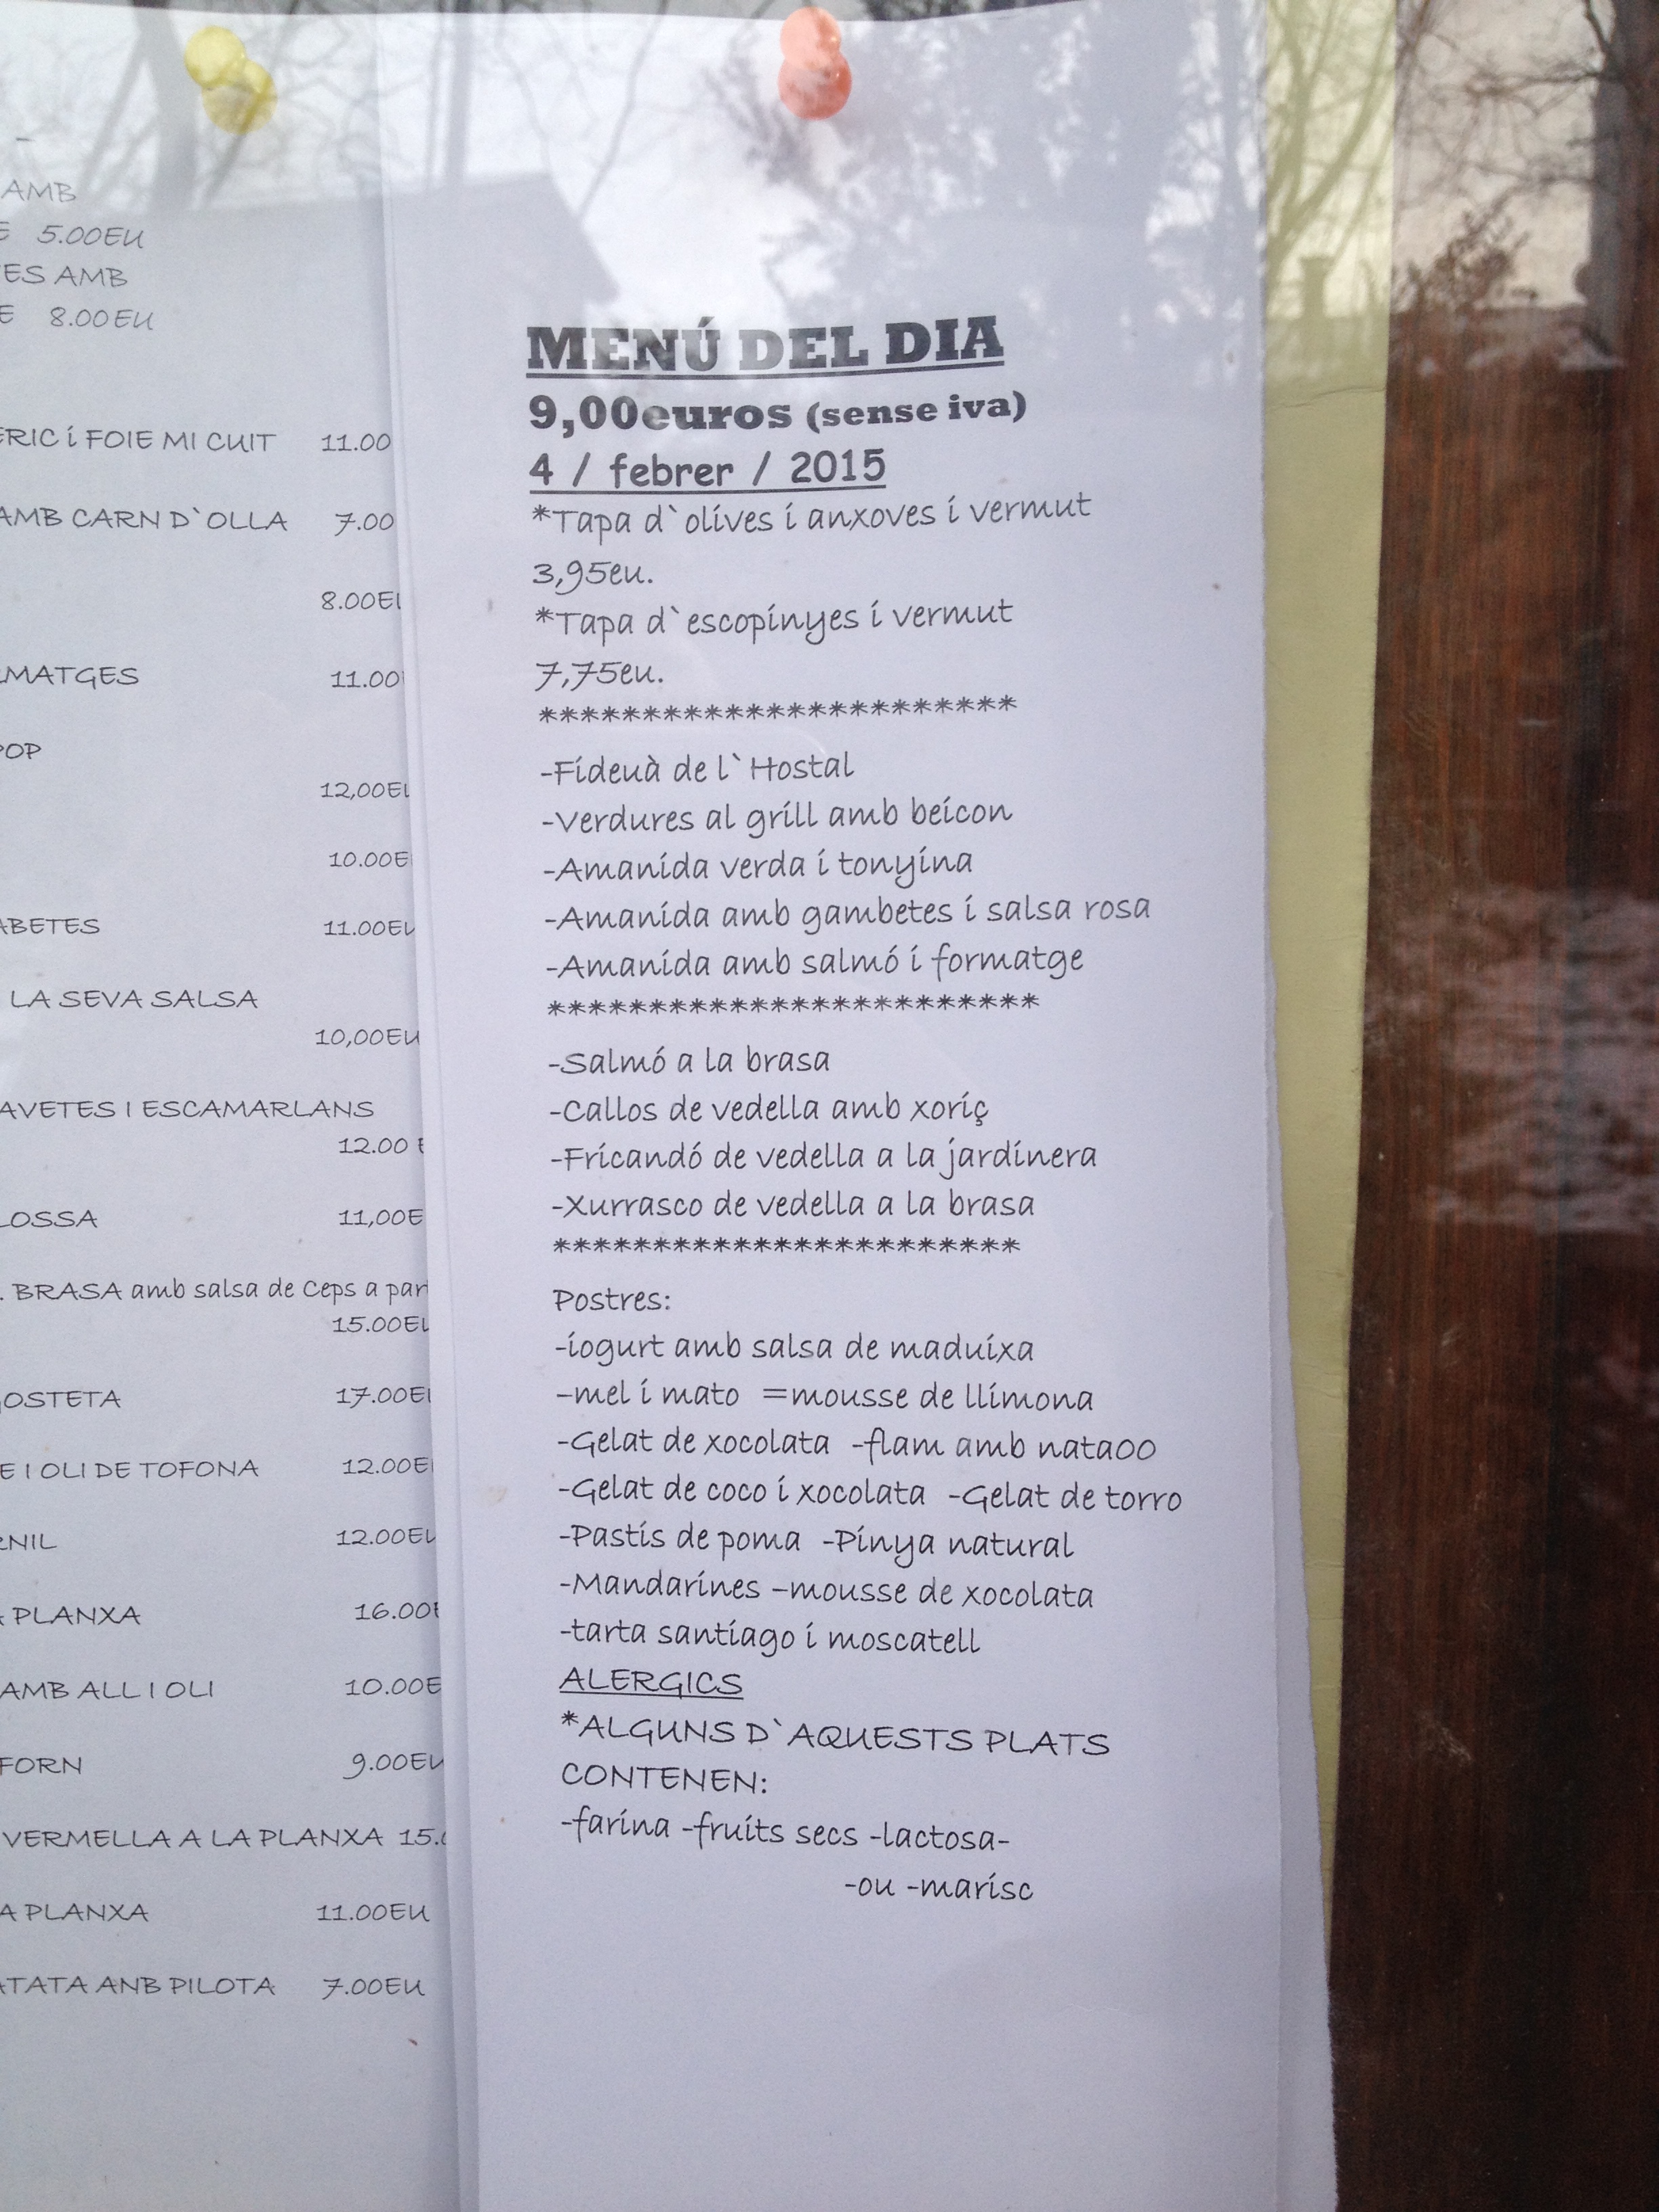 AMB
E 5.00EU
ES AMB
E 8.00EU
ERIC i FOIE MI CUIT 11.00
AMB CARN D`OLLA 7.00
8.00EU
MATGES 11.00
POP
12,00EU
10.00E
ABETES 11.00EU
LA SEVA SALSA
10,00EU
AVETES I ESCAMARLANS
12.00 E
LOSSA 11,00E
. BRASA amb salsa de Ceps a part
15.00EU
OSTETA 17.00EU
E I OLI DE TOFONA 12.00E
RNIL 12.00EU
A PLANXA 16.00E
AMB ALL I OLI 10.00E
FORN 9.00EU
VERMELLA A LA PLANXA 15.0
A PLANXA 11.00EU
ATATA ANB PILOTA 7.00EU
MENÚ DEL DIA
9,00euros (sense iva)
4 / febrer / 2015
*Tapa d`olives i anxoves i vermut
3,95eu.
*Tapa d`escopinyes i vermut
7,75eu.
***********************
-Fideuà de l`Hostal
-Verdures al grill amb beicon
-Amanida verda i tonyina
-Amanida amb gambetes i salsa rosa
-Amanida amb salmó i formatge
************************
-Salmó a la brasa
-Callos de vedella amb xoriç
-Fricandó de vedella a la jardinera
-Xurrasco de vedella a la brasa
***********************
Postres:
-iogurt amb salsa de maduixa
–mel i mato =mousse de llimona
-Gelat de xocolata -flam amb nata00
-Gelat de coco i xocolata -Gelat de torro
-Pastis de poma -Pinya natural
-Mandarines –mousse de xocolata
-tarta santiago i moscatell
ALERGICS
*ALGUNS D`AQUESTS PLATS
CONTENEN:
-farina -fruits secs -lactosa-
-ou -marisc